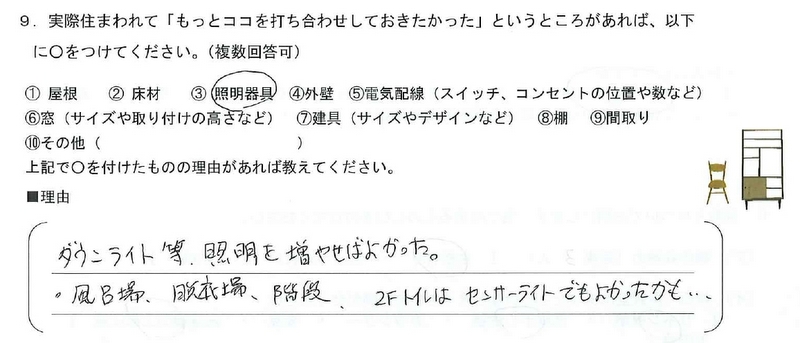 9．実際住まわれて「もっとココを打ち合わせしておきたかった」というところがあれば、以下
に〇をつけてください。（複数回答可）
① 屋根　② 床材　③ 照明器具　④外壁　⑤電気配線（スイッチ、コンセントの位置や数など）
⑥窓（サイズや取り付けの高さなど）　⑦建具（サイズやデザインなど）　⑧棚　⑨間取り
⑩その他（　　　　　　　　　　　）
上記で〇を付けたものの理由があれば教えてください。
■理由
ダウンライト等、照明を増やせばよかった。
・風呂場、脱衣場、階段、2Fトイレは センサーライトでもよかったかも…